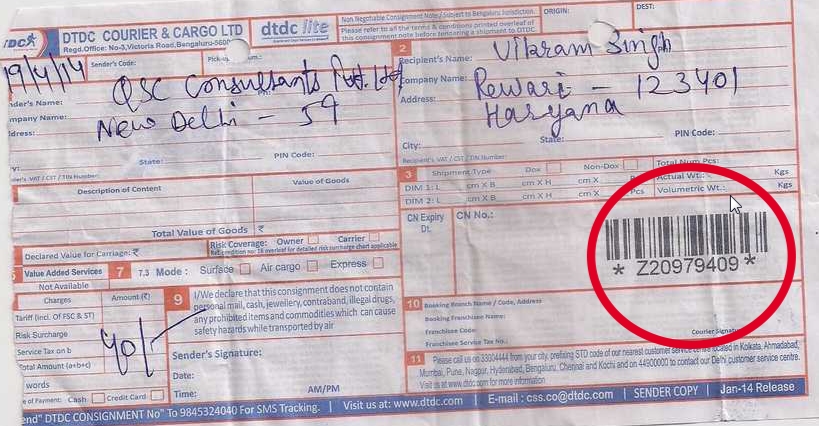 DTDC COURIER & CARGO LTD
Regd.Office: No-3,Victoria Road,Bengaluru-560
dtdc lite
Non Negotiable Consignment Note / Subject to Bengaluru Jurisdiction.
Please refer to all the terms & conditions printed overleaf of
this consignment note before tendering a shipment to DTDC.
ORIGIN:
DEST:
19/4/14
Sender's Code:
nder's Name:
QSC Consultants Pvt. Ltd
mpany Name:
New Delhi - 59
dress:
State:
PIN Code:
's VAT / CST / TIN Number
2
Recipient's Name: Vikram Singh
Company Name: Rewari - 123401
Address: Haryana
City:
State:
PIN Code:
Recipient's VAT / CST / TIN Number
Description of Content
Value of Goods
Total Value of Goods ₹
Declared Value for Carriage: ₹
Risk Coverage: Owner Carrier
Value Added Services
Not Available
7 7.3 Mode: Surface Air cargo Express
Charges
Amount (₹)
Tariff (incl. Of FSC & ST)
Risk Surcharge
Service Tax on b
Total Amount (a+b+c)
40/-
words
e of Payment: Cash Credit Card
9 I/We declare that this consignment does not contain
personal mail, cash, jewellery, contraband, illegal drugs,
any prohibited items and commodities which can cause
safety hazards while transported by air
Sender's Signature:
Date:
Time:
AM/PM
3 Shipment Type Dox Non-Dox
Total Num Pcs:
DIM 1: L cm X B cm X H cm X
Actual Wt.: Kgs
DIM 2: L cm X B cm X H cm X Pcs
Volumetric Wt.: Kgs
CN Expiry
Dt.
CN No.:
* Z20979409 *
10 Booking Branch Name / Code, Address
Booking Franchisee Name:
Franchisee Code:
Franchisee Service Tax No.:
Courier Signatu
11 Please call us on 33004444 from your city, prefixing STD code of our nearest customer service centre located in Kolkata, Ahmadabad,
Mumbai, Pune, Nagpur, Hyderabad, Bengaluru, Chennai and Kochi and on 44900000 to contact our Delhi customer service centre.
Visit us at www.dtdc.com for more information
end" DTDC CONSIGNMENT No" To 9845324040 For SMS Tracking. | Visit us at: www.dtdc.com | E-mail : css.co@dtdc.com | SENDER COPY | Jan-14 Release